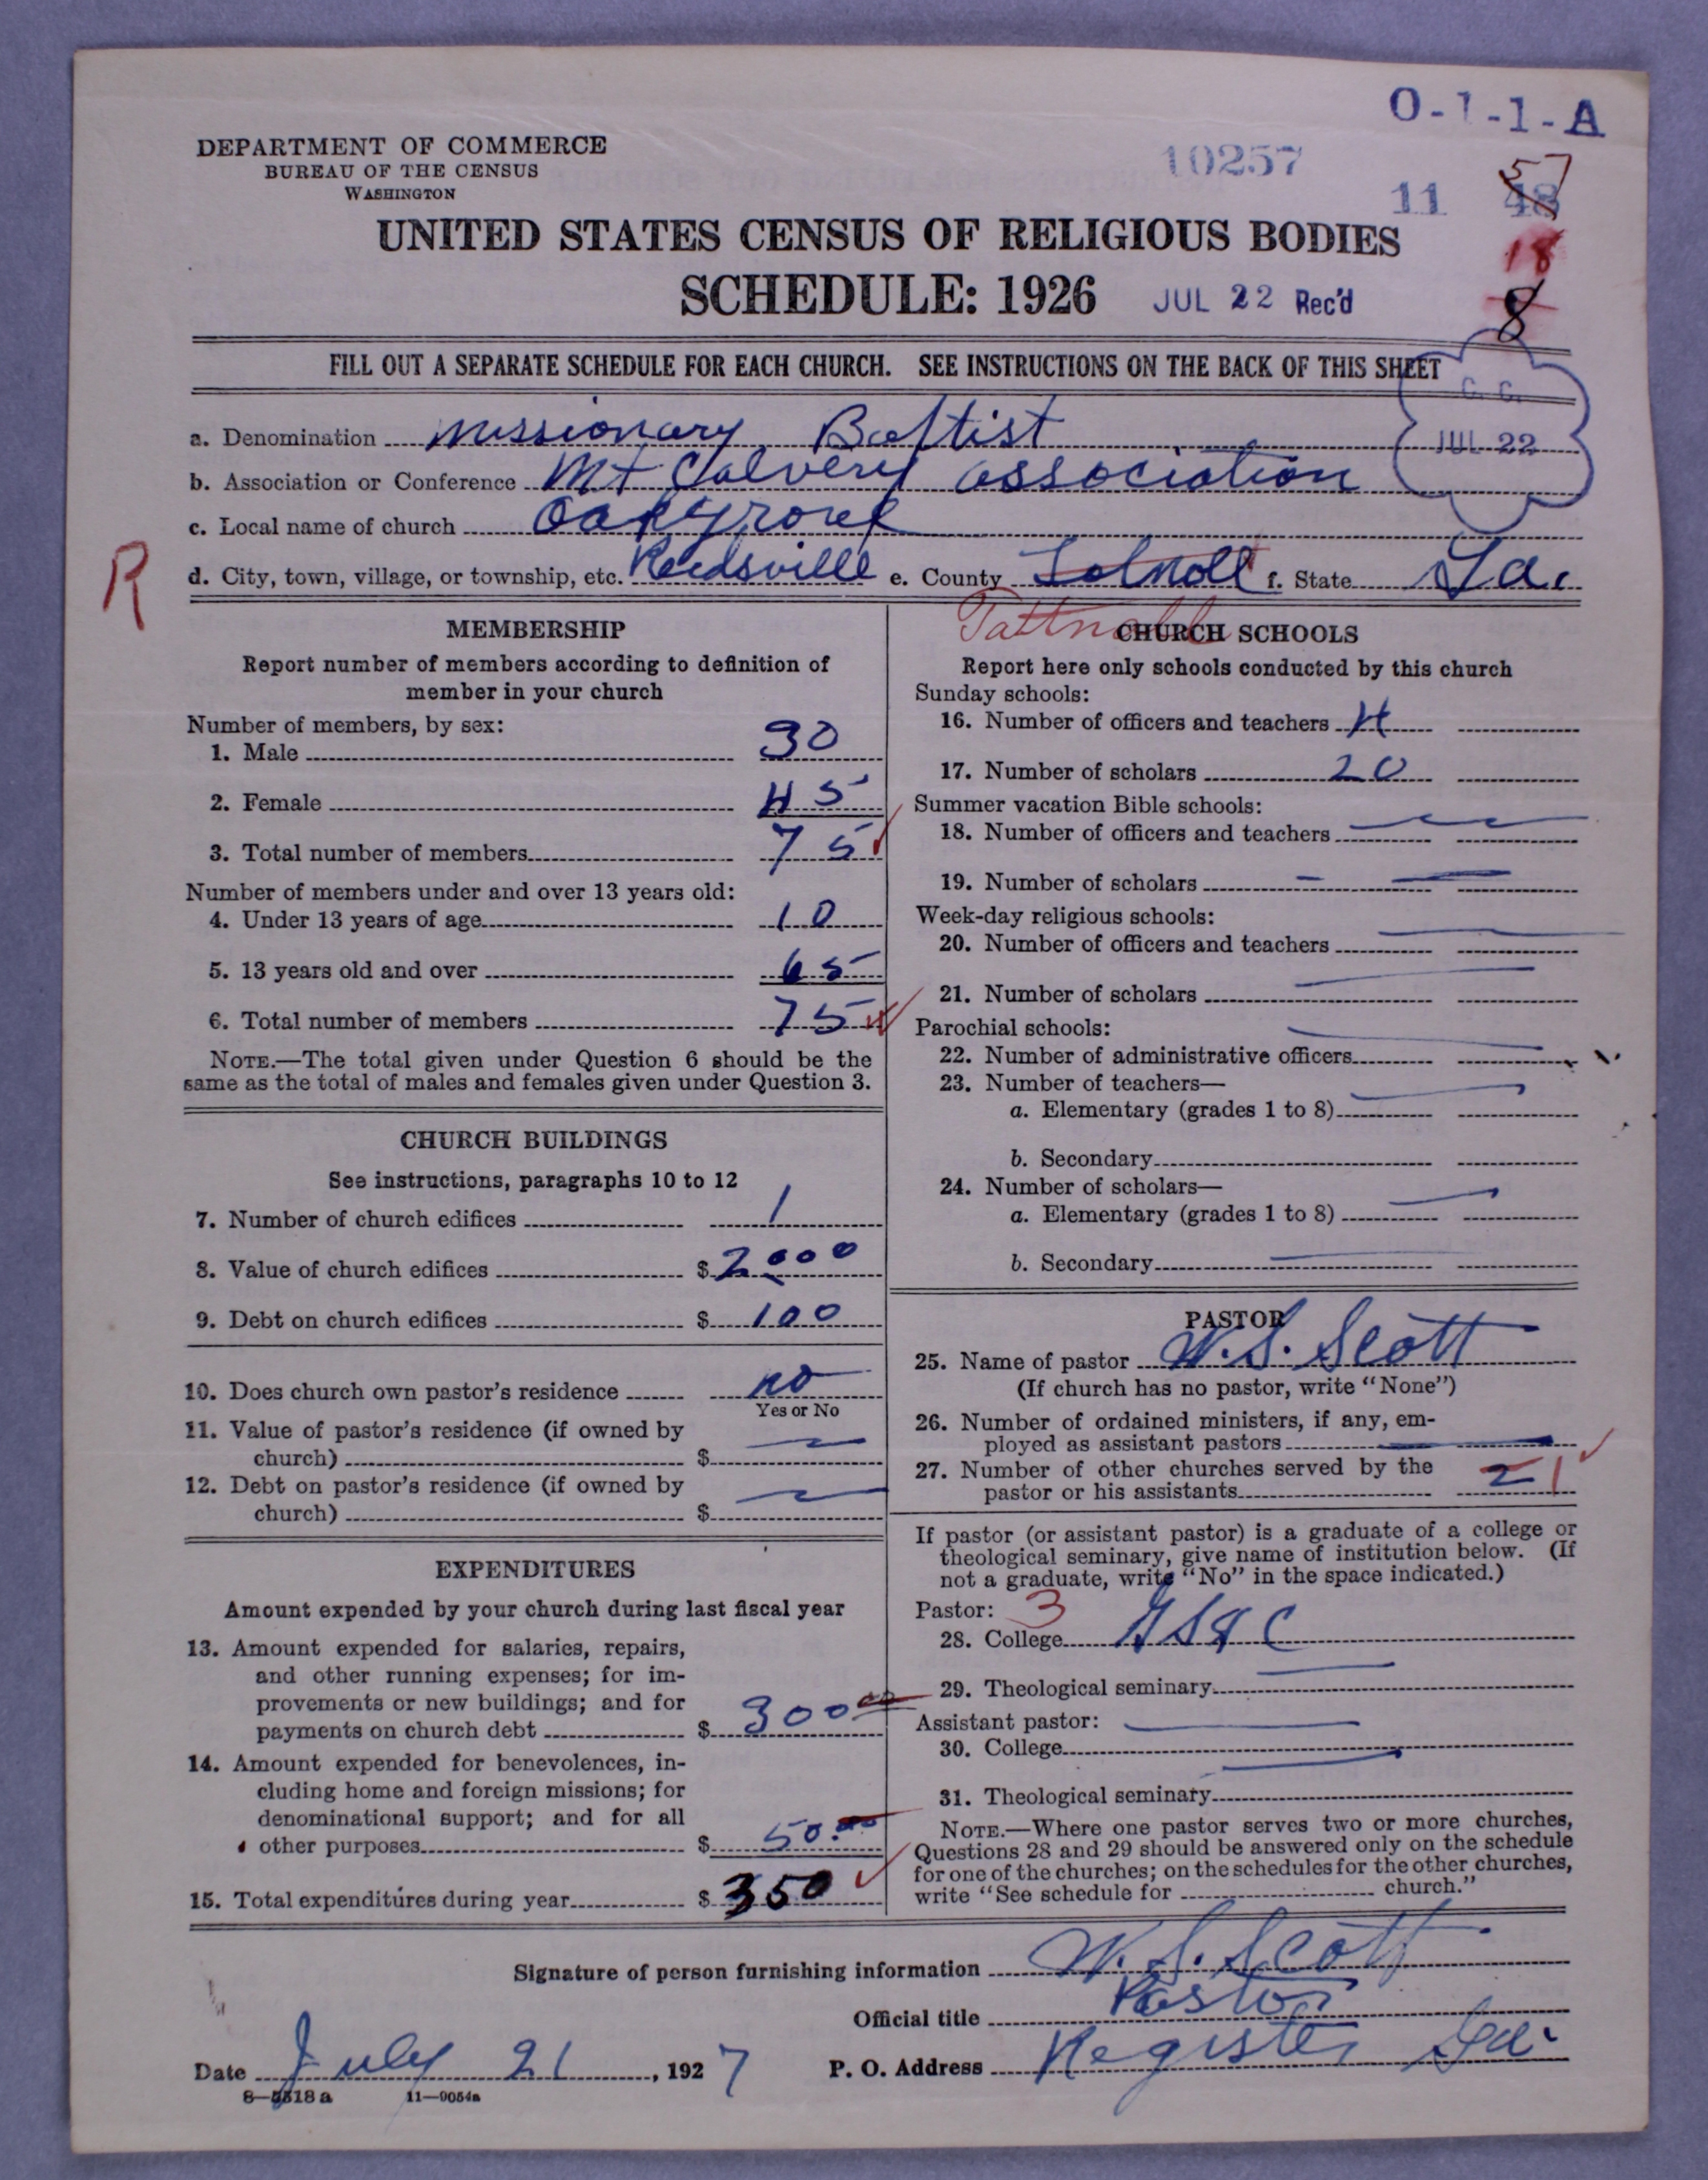 O-1-1-A
DEPARTMENT OF COMMERCE
BUREAU OF THE CENSUS
WASHINGTON
10257
57
11 48
UNITED STATES CENSUS OF RELIGIOUS BODIES
18
SCHEDULE: 1926 JUL 22 Rec'd
8
FILL OUT A SEPARATE SCHEDULE FOR EACH CHURCH. SEE INSTRUCTIONS ON THE BACK OF THIS SHEET
C. C.
JUL 22
a. Denomination Missionary Baptist
b. Association or Conference Mt Calvery association
c. Local name of church Oak grove
R
d. City, town, village, or township, etc. Reedsville e. County f. State Ga.
Tattnall
MEMBERSHIP
Report number of members according to definition of
member in your church
Number of members, by sex:
1. Male 30
2. Female 45
3. Total number of members 75
Number of members under and over 13 years old:
4. Under 13 years of age 10
5. 13 years old and over 65
6. Total number of members 75
NOTE.—The total given under Question 6 should be the
same as the total of males and females given under Question 3.
CHURCH BUILDINGS
See instructions, paragraphs 10 to 12
7. Number of church edifices 1
8. Value of church edifices $ 2000
9. Debt on church edifices $ 100
10. Does church own pastor's residence no
Yes or No
11. Value of pastor's residence (if owned by
church) $
12. Debt on pastor's residence (if owned by
church) $
EXPENDITURES
Amount expended by your church during last fiscal year
13. Amount expended for salaries, repairs,
and other running expenses; for im-
provements or new buildings; and for
payments on church debt $ 300 00
14. Amount expended for benevolences, in-
cluding home and foreign missions; for
denominational support; and for all
other purposes $ 50.00
15. Total expenditures during year $ 350
CHURCH SCHOOLS
Report here only schools conducted by this church
Sunday schools:
16. Number of officers and teachers 4
17. Number of scholars 20
Summer vacation Bible schools:
18. Number of officers and teachers
19. Number of scholars
Week-day religious schools:
20. Number of officers and teachers
21. Number of scholars
Parochial schools:
22. Number of administrative officers
23. Number of teachers—
a. Elementary (grades 1 to 8)
b. Secondary
24. Number of scholars—
a. Elementary (grades 1 to 8)
b. Secondary
PASTOR
25. Name of pastor W. S. Scott
(If church has no pastor, write "None")
26. Number of ordained ministers, if any, em-
ployed as assistant pastors
27. Number of other churches served by the
pastor or his assistants 2 1
If pastor (or assistant pastor) is a graduate of a college or
theological seminary, give name of institution below. (If
not a graduate, write "No" in the space indicated.)
Pastor: 3
28. College
29. Theological seminary
Assistant pastor:
30. College
31. Theological seminary
NOTE.—Where one pastor serves two or more churches,
Questions 28 and 29 should be answered only on the schedule
for one of the churches; on the schedules for the other churches,
write "See schedule for church."
Signature of person furnishing information W. S. Scott
Official title Pastor
Date July 21, 1927 P. O. Address Register Ga.
8—5518 a 11—9054a